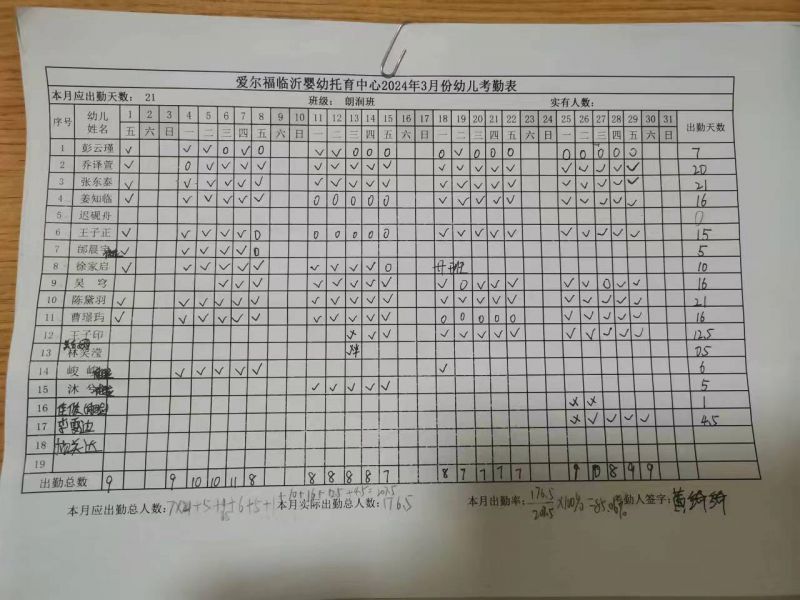 爱尔福临沂婴幼托育中心2024年3月份幼儿考勤表
本月应出勤天数： 21 班级： 朗润班 实有人数：
序号 幼儿姓名 1 2 3 4 5 6 7 8 9 10 11 12 13 14 15 16 17 18 19 20 21 22 23 24 25 26 27 28 29 30 31 出勤天数
五 六 日 一 二 三 四 五 六 日 一 二 三 四 五 六 日 一 二 三 四 五 六 日 一 二 三 四 五 六 日
1 彭云瑾 √ √ √ 0 √ 0 √ √ 0 0 0 0 √ 0 0 0 0 0 0 0 0 7
2 乔泽萱 √ 0 √ √ √ √ √ √ √ √ √ √ √ √ √ √ √ √ √ √ √ 20
3 张东泰 √ √ √ √ √ √ √ √ √ √ √ √ √ √ √ √ √ √ √ √ √ 21
4 姜知临 √ √ √ √ √ √ 0 0 0 0 0 √ √ √ √ √ √ √ √ √ √ 16
5 迟砚舟 0
6 王子正 √ √ √ √ √ 0 0 0 0 0 0 √ √ √ √ √ √ √ √ √ √ 15
7 邰晨宇 √ √ √ √ √ 0 5
8 徐家启 √ √ √ √ √ √ √ √ √ √ 0 升班 10
9 吴穹 √ √ √ √ √ √ √ √ √ 0 √ √ √ √ √ 0 √ √ 16
10 陈黛羽 √ √ √ √ √ √ √ √ √ √ √ √ √ √ √ √ √ √ √ √ √ 21
11 曹璟筠 √ √ √ √ √ √ √ √ √ √ √ 0 0 0 0 0 √ √ √ √ √ 16
12 王子印 × √ √ √ √ √ √ √ √ √ √ √ √ 12.5
13 林昊滢 0.5
14 峻 √ √ √ √ √ √ 6
15 沐 √ √ √ √ √ 5
16 × × 1
17 × √ √ √ √ 4.5
18
19
出勤总数 9 9 10 10 11 8 8 8 8 8 7 8 7 7 7 7 9 10 8 9 9
+10+16+12.5+4.5=207.5
本月应出勤总人数： 本月实际出勤总人数：176.5 本月出勤率：176.5/207.5×100%=85.06% 考勤人签字：